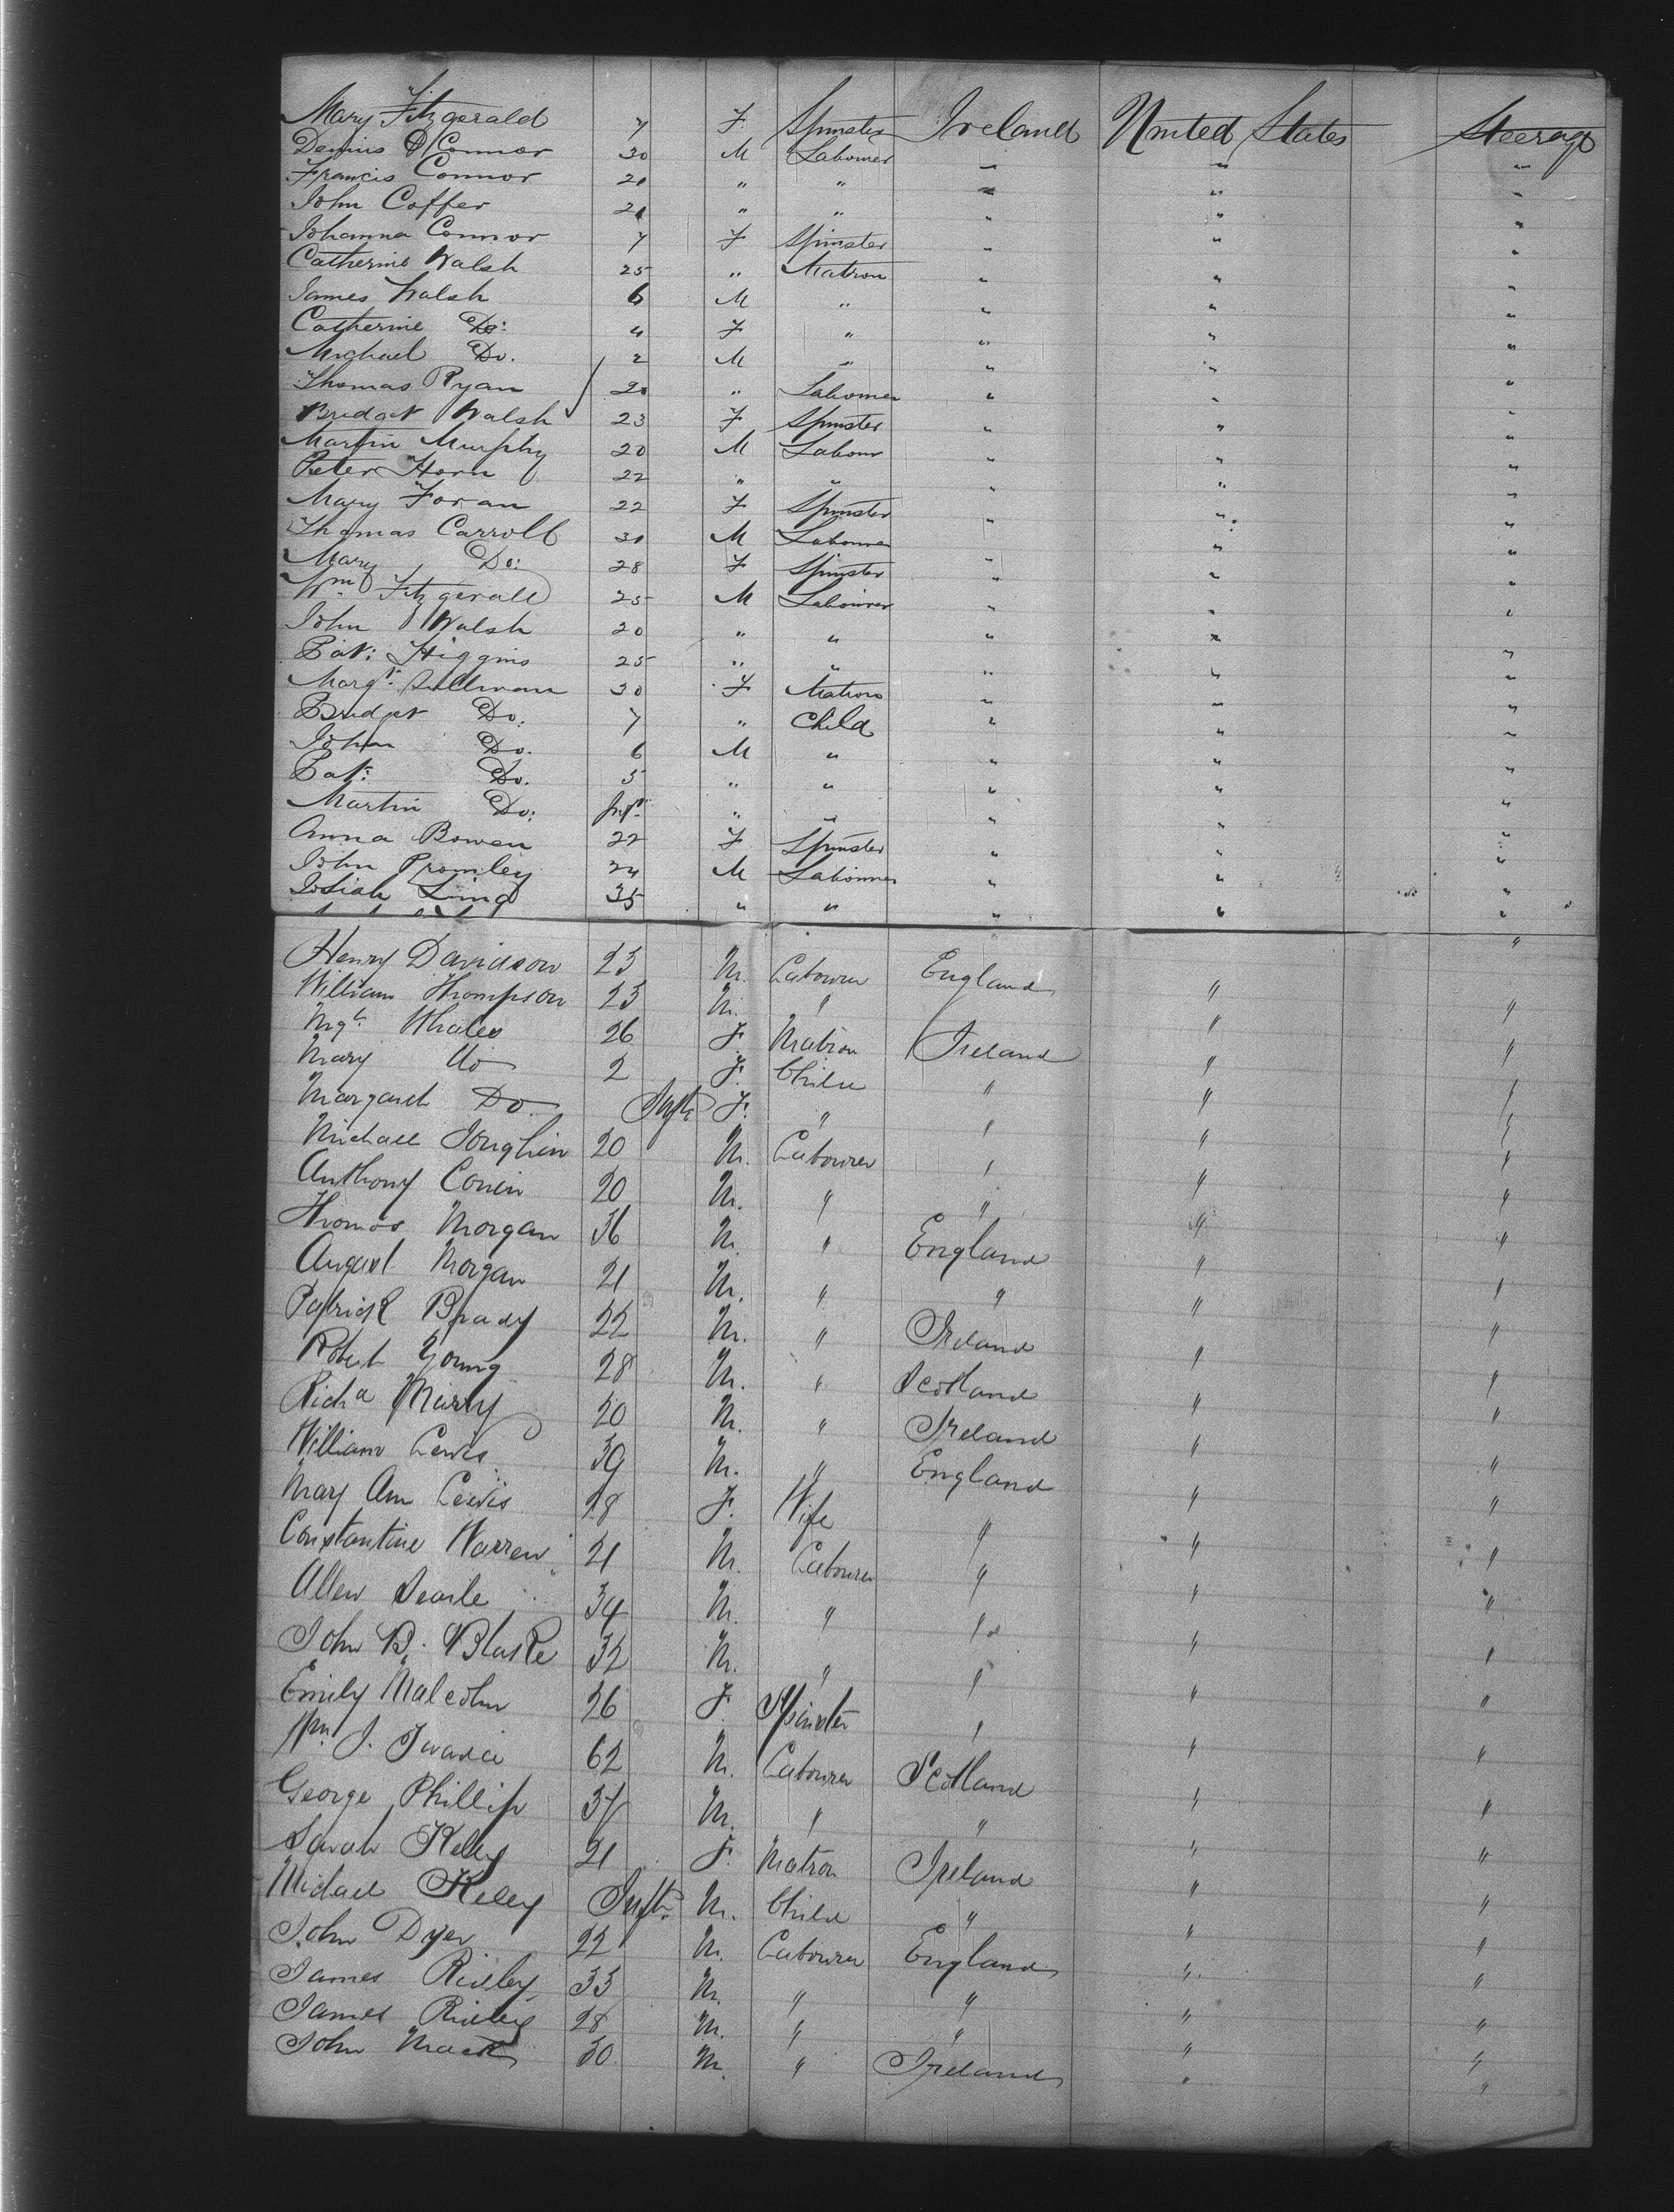 Mary Fitzgerald 7 F Spinster Ireland United States Steerage
Dennis O'Connor 30 M Labourer " " "
Francis Connor 20 " " " " "
John Coffer 21 " " " " "
Johanna Connor 7 F Spinster " " "
Catherine Walsh 25 " Matron " " "
James Walsh 6 M " " " "
Catherine Do: 4 F " " " "
Michael Do. 2 M " " " "
Thomas Ryan 20 " Labourer " " "
Bridget Walsh 23 F Spinster " " "
Martin Murphy 20 M Labour " " "
Peter Horn 22 " " " " "
Mary Foran 22 F Spinster " " "
Thomas Carroll 30 M Labourer " " "
Mary Do: 28 F Spinster " " "
Wm Fitzgerald 25 M Labourer " " "
John Walsh 20 " " " " "
Pat: Higgins 25 " " " " "
Margt. Sullivan 30 F Matron " " "
Bridget Do: 7 " Child " " "
John Do. 6 M " " " "
Pat: Do. 5 " " " " "
Martin Do: Inft. " " " " "
Anna Bowen 22 F Spinster " " "
John Promley 24 M Labourer " " "
Josiah 35 " " " " "
Henry Davidson 23 M. Labourer England " "
William Thompson 23 M. " " "
Mgt. Whales 26 F. Matron Ireland " "
Mary Do 2 F. Child " " "
Margaret Do Inft F. " " " "
Michael 20 M. Labourer " " "
Anthony 20 M. " " " "
Thomas Morgan 36 M. " England " "
August Morgan 21 M. " " " "
Patrick Brady 22 M. " Ireland " "
Robert Young 28 M. " Scotland " "
Richd 20 M. " Ireland " "
William Lewis 39 M. " England " "
Mary Ann Lewis 28 F. Wife " " "
Constantine Warren 21 M. Labourer " " "
Allen Searle 34 M. " " " "
John B. Blake 32 M. " " " "
Emily Malcolm 26 F. Spinster " " "
Wm J. 62 M. Labourer Scotland " "
George Phillip 37 M. " " " "
Sarah Kelly 21 F. Matron Ireland " "
Michael Kelly Inft. M. Child " " "
John Dyer 22 M. Labourer England " "
James Rixley 33 M. " " " "
James Rixley 28 M. " " " "
John Mack 30 M. " Ireland " "